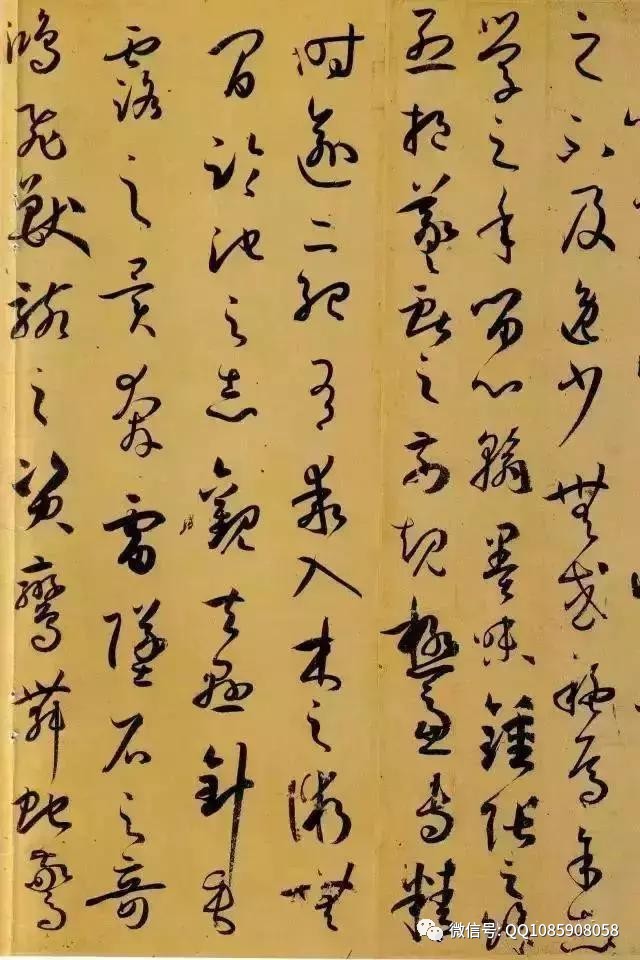 之不及逸少無或疑焉余志
學之年留心翰墨味鍾張之餘
烈挹羲獻之前規極慮專精
時逾二紀有乖入木之術無
間臨池之志觀夫懸針垂
露之異奔雷墜石之奇
鴻飛獸駭之資鸞舞蛇驚
微信号: QQ1085908058